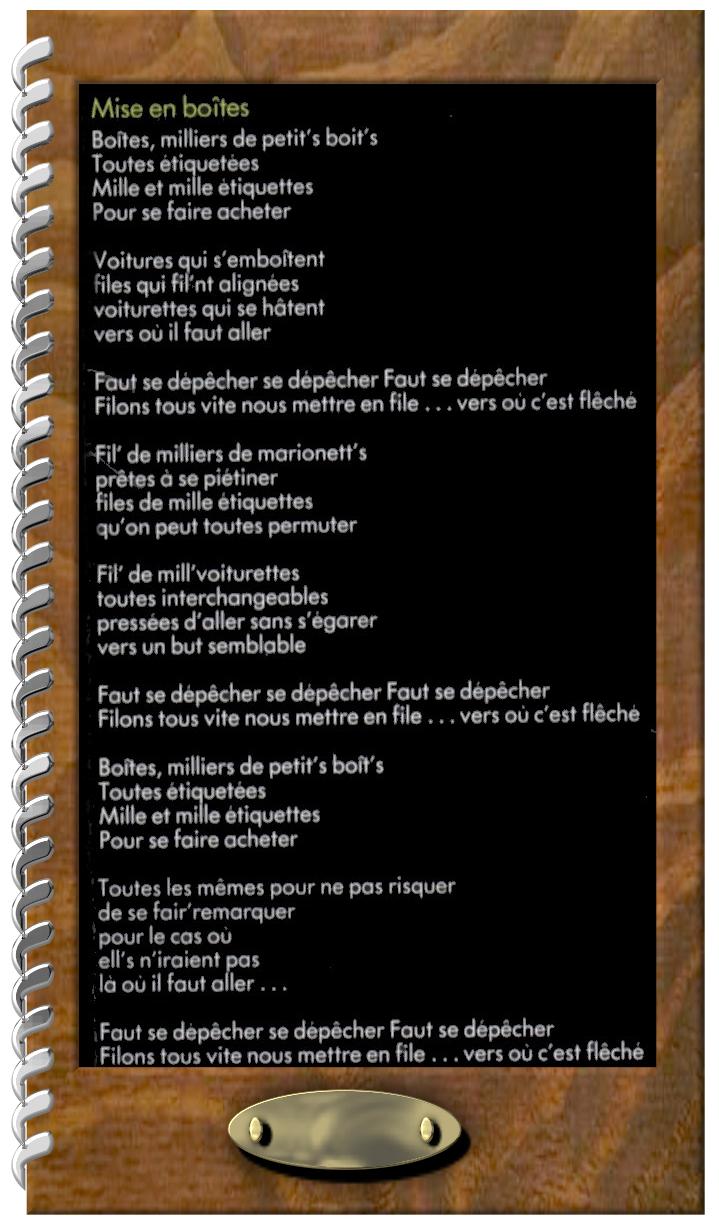 Mise en boîtes
Boîtes, milliers de petit's boit's
Toutes étiquetées
Mille et mille étiquettes
Pour se faire acheter
Voitures qui s'emboîtent
files qui fil'nt alignées
voiturettes qui se hâtent
vers où il faut aller
Faut se dépêcher se dépêcher Faut se dépêcher
Filons tous vite nous mettre en file . . . vers où c'est flêché
Fil' de milliers de marionett's
prêtes à se piétiner
files de mille étiquettes
qu'on peut toutes permuter
Fil' de mill'voiturettes
toutes interchangeables
pressées d'aller sans s'égarer
vers un but semblable
Faut se dépêcher se dépêcher Faut se dépêcher
Filons tous vite nous mettre en file . . . vers où c'est flêché
Boîtes, milliers de petit's boît's
Toutes étiquetées
Mille et mille étiquettes
Pour se faire acheter
Toutes les mêmes pour ne pas risquer
de se fair'remarquer
pour le cas où
ell's n'iraient pas
là où il faut aller . . .
Faut se dépêcher se dépêcher Faut se dépêcher
Filons tous vite nous mettre en file . . . vers où c'est flêché